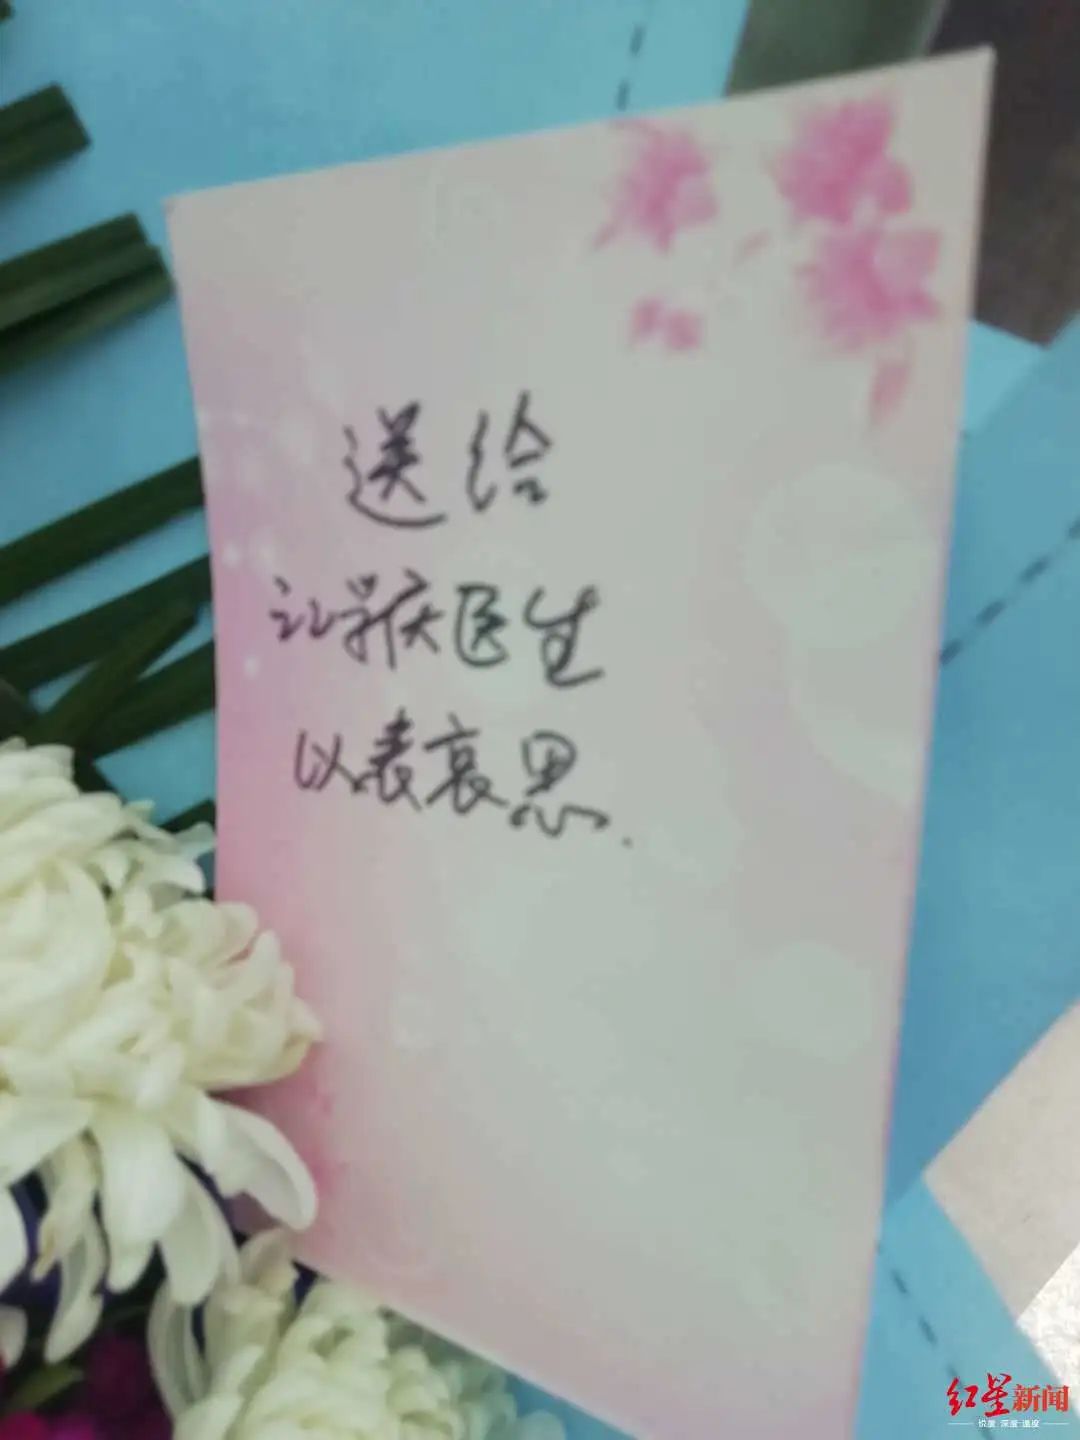 送给
江学庆医生
以表哀思.
红星新闻
深度 温度